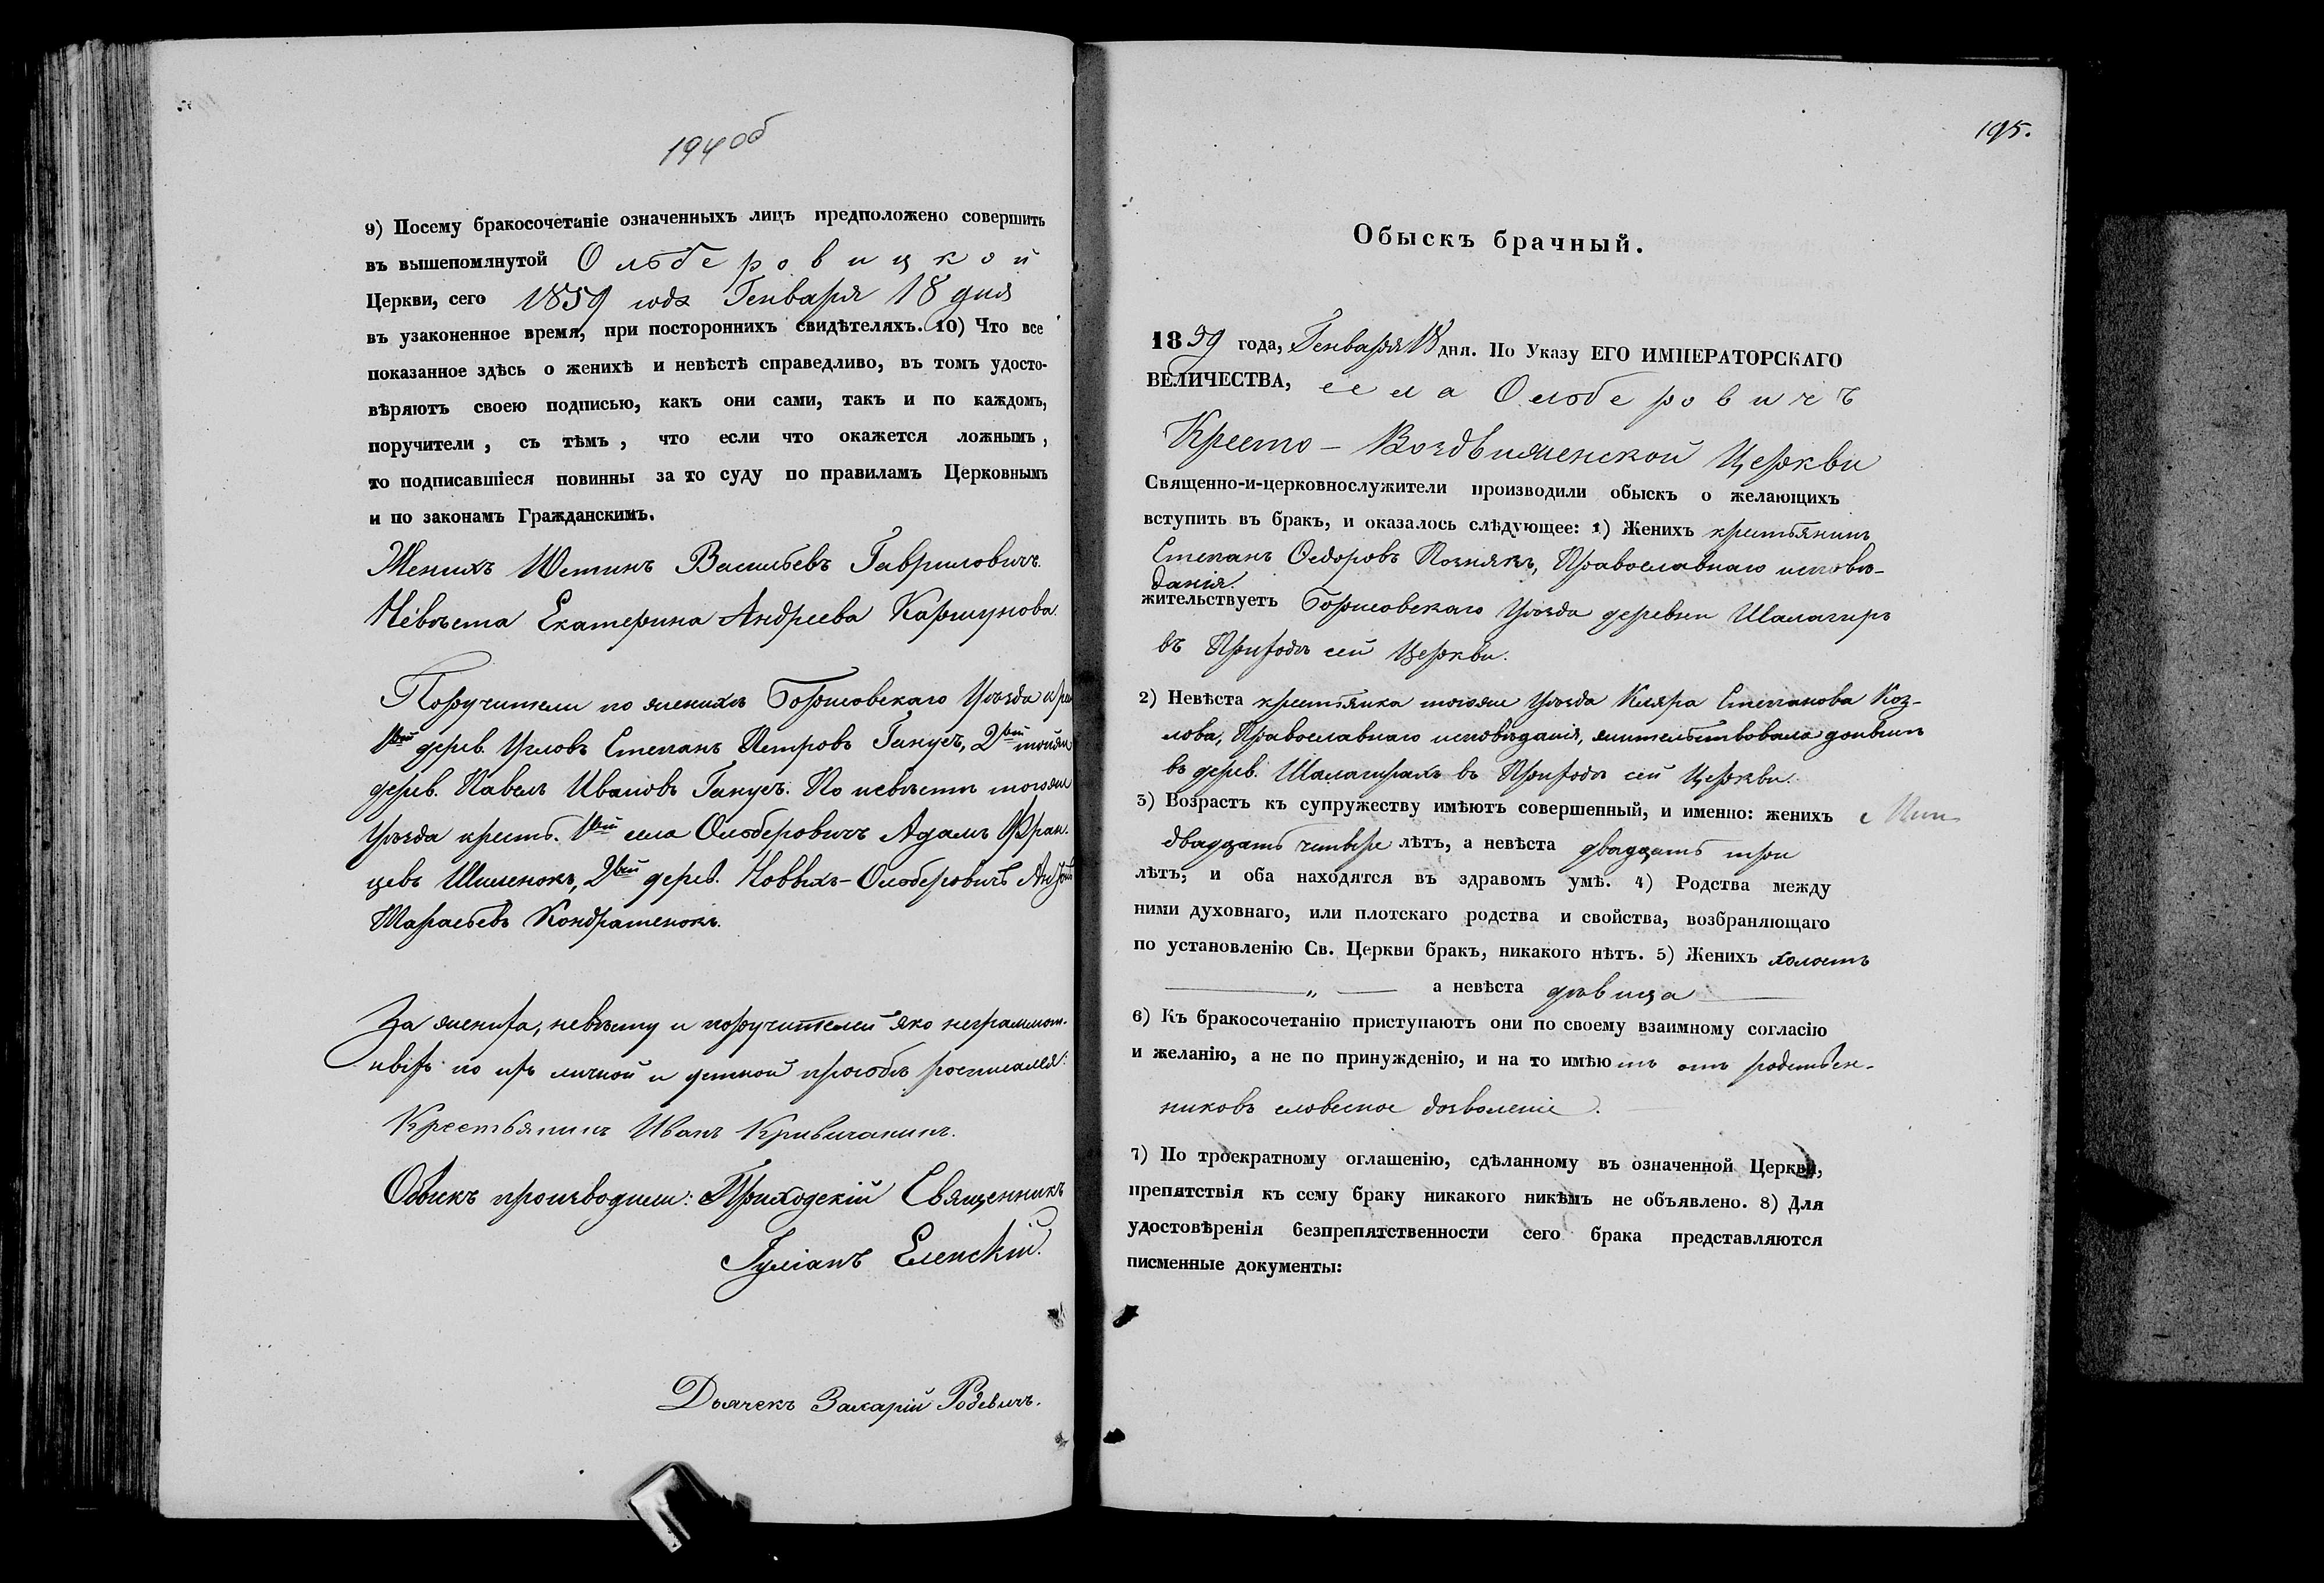 194 об
9) Посему бракосочетаніе означенныхъ лицъ предположено совершить
въ вышепомянутой Ольберовицкой
Церкви, сего 1859 года Генваря 18 дня
въ узаконенное время, при постороннихъ свидѣтеляхъ. 10) Что все
показанное здѣсь о женихѣ и невѣстѣ справедливо, въ томъ удосто-
вѣряютъ своею подписью, какъ они сами, такъ и по каждомъ,
поручители, съ тѣмъ, что если что окажется ложнымъ,
то подписавшіеся повинны за то суду по правиламъ Церковнымъ
и по законамъ Гражданскимъ.
Женихъ Устинъ Васильевъ Гавриловичъ.
Невѣста Екатерина Андреева Каршунова.
Поручители по женихѣ Борисовскаго Уѣзда
1вый дерев. Угловъ Степанъ Петровъ Ганусъ, 2вый тойже
дерев. Павелъ Ивановъ Ганусъ. По невѣстѣ тогоже
Уѣзда крестъ. 1вый села Ольберовичъ Адамъ Фран-
цевъ Шименокъ, 2вый дерев. Новыхъ-Ольберовичъ
Тарасьевъ Кондратенокъ.
За жениха, невѣсту и поручителей яко неграмот-
ныхъ по ихъ личной и устной прозьбѣ росписался:
Крестьянинъ Иванъ Кривичанинъ.
Обыскъ производили: Приходскій Священникъ
Іуліанъ Еленскій.
Дьячекъ Захарій Родевичъ.
195.
Обыскъ брачный.
1859 года, Генваря 18 дня. По Указу ЕГО ИМПЕРАТОРСКАГО
ВЕЛИЧЕСТВА, села Ольберовичъ
Кресто-Воздвиженской Церкви
Священно-и-церковнослужители производили обыскъ о желающихъ
вступить въ бракъ, и оказалось слѣдующее: 1) Женихъ крестьянинъ
Степанъ Ѳедоровъ Познякъ, Православнаго исповѣ-
данія.
жительствуетъ Борисовскаго Уѣзда деревни Шалагиръ
въ Приходѣ сей Церкви.
2) Невѣста крестьянка тогоже Уѣзда Кляра Степанова Коз-
лова, Православнаго исповѣданія, жительствовала донынѣ
въ дерев. Шалагирахъ въ Приходѣ сей Церкви.
3) Возрастъ къ супружеству имѣютъ совершенный, и именно: женихъ
двадцать четыре лѣтъ, а невѣста двадцать три
лѣтъ; и оба находятся въ здравомъ умѣ. 4) Родства между
ними духовнаго, или плотскаго родства и свойства, возбраняющаго
по установленію Св. Церкви бракъ, никакого нѣтъ. 5) Женихъ холостъ
— „ — а невѣста дѣвица
6) Къ бракосочетанію приступаютъ они по своему взаимному согласію
и желанію, а не по принужденію, и на то имѣютъ отъ родствен-
никовъ словесное дозволеніе.
7) По троекратному оглашенію, сдѣланному въ означенной Церкви,
препятствія къ сему браку никакого никѣмъ не объявлено. 8) Для
удостовѣренія безпрепятственности сего брака представляются
писменные документы: